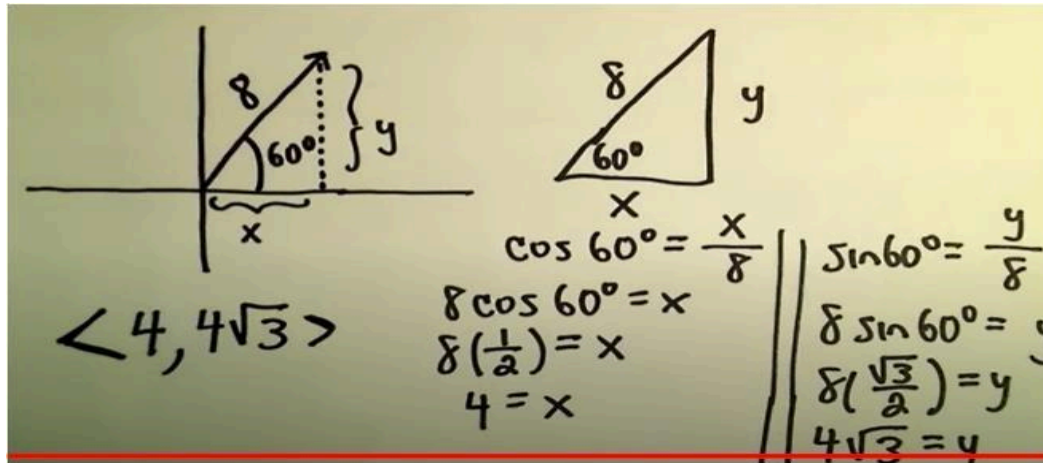 8
60°
y
x
8
60°
y
x
cos 60° = x/8
8 cos 60° = x
8(1/2) = x
4 = x
sin60° = y/8
8 sin 60° = y
8(√3/2) = y
4√3 = y
<4, 4√3>